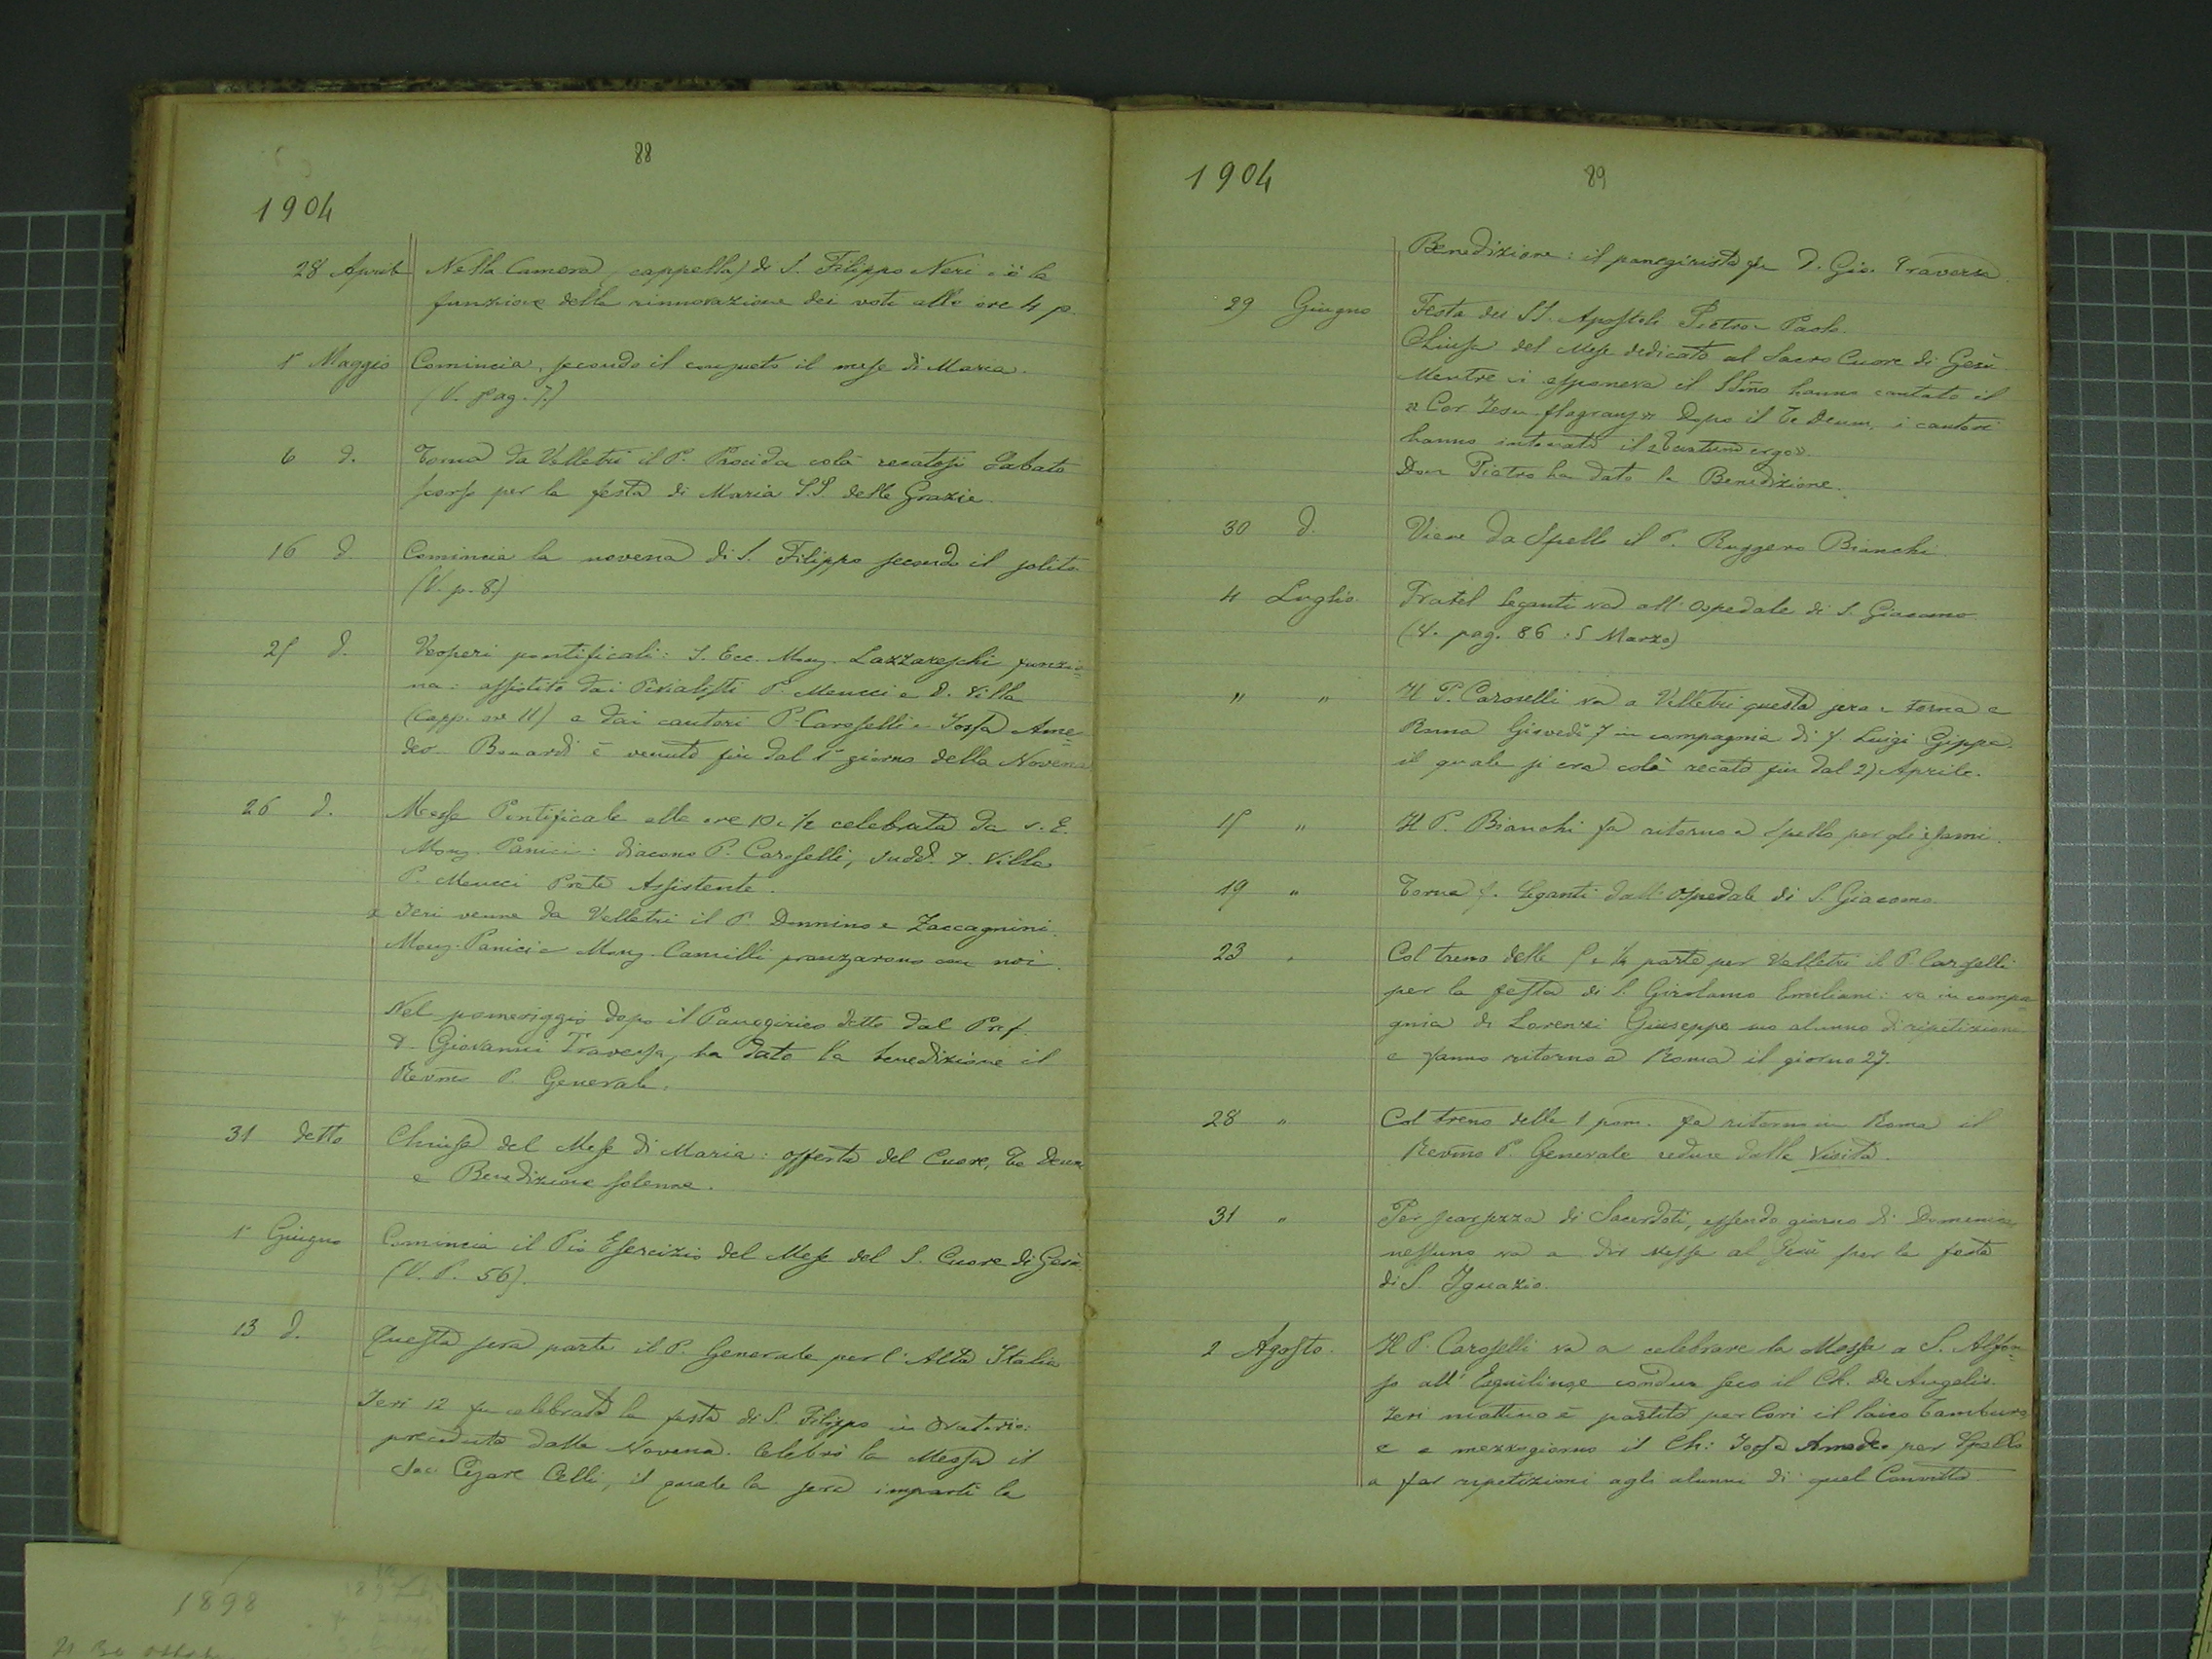 88
1904
28 Aprile Nella Camera (cappella) di S. Filippo Neri c'è la
funzione della rinnovazione dei voti alle ore 4 p.
1° Maggio Comincia, secondo il consueto il mese di Maria.
(V. pag. 7.)
6 d. Torna da Velletri il P. Procida colà recatosi Sabato
scorso per la festa di Maria SS. delle Grazie.
16 d. Comincia la novena di S. Filippo secondo il solito
(V. p. 8.)
25 d. Vesperi pontificali: S. Ecc. Mons. Lazzareschi funzio=
na: assistito dai Pivialisti P. Meucci e D. Villa
(Capp. ore 11) e dai cantori P. Caroselli e Iossa Ame=
deo. Bonardi è venuto fin dal 1° giorno della Novena
26 d. Messa Pontificale alle ore 10 e 1/2 celebrata da S. E.
Mons. Panici: diacono P. Caroselli, Sudd. D. Villa
P. Meucci Prete Assistente.
Ieri venne da Velletri il P. Donnino e Zaccagnini.
Mons. Panici e Mons. Camilli pranzarono con noi.
Nel pomeriggio dopo il Panegirico detto dal Prof.
D. Giovanni Traversa, ha dato la benedizione il
Revmo P. Generale.
31 detto Chiusa del Mese di Maria: offerta del Cuore, Te Deum
e Benedizione solenne.
1° Giugno Comincia il Pio Esercizio del Mese del S. Cuore di Gesù
(V. P. 56).
13 d. Questa sera parte il P. Generale per l'Alta Italia
Ieri 12 fu celebrata la festa di S. Filippo in Oratorio:
preceduta dalla Novena. Celebrò la Messa il
Sac. Cesare Celli, il quale la sera impartì la
1904
89
Benedizione: il panegirista fu D. Gio. Traversa.
29 Giugno Festa dei SS. Apostoli Pietro e Paolo.
Chiusa del Mese dedicato al Sacro Cuore di Gesù
Mentre si esponeva il SSmo hanno cantato il
« Cor Iesu flagrans» Dopo il Te Deum, i cantori
hanno intonato il «Tantum ergo».
Don Pietro ha dato la Benedizione.
30 d. Viene da Spello il P. Ruggero Bianchi.
4 Luglio. Fratel Seganti va all'Ospedale di S. Giacomo
(V. pag. 86 : 5 Marzo)
" " Il P. Caroselli va a Velletri questa sera e torna a
Roma Giovedì 7 in compagnia di f. Luigi Gippa.
il quale si era colà recato fin dal 27 Aprile.
15 " Il P. Bianchi fa ritorno a Spello per gli esami.
19 " Torna f. Seganti dall'Ospedale di S. Giacomo.
23 " Col treno delle 5 e 1/4 parte per Velletri il P. Caroselli
per la festa di S. Girolamo Emiliani: va in compa=
gnia di Lorenzi Giuseppe suo alunno di ripetizione
e fanno ritorno a Roma il giorno 27.
28 " Col treno delle 1 pom. fa ritorno in Roma il
Revmo P. Generale reduce dalla Visita.
31 " Per scarsezza di Sacerdoti, essendo giorno di Domenica,
nessuno va a dir Messa al Gesù per la festa
di S. Ignazio.
2 Agosto. Il P. Caroselli va a celebrare la Messa a S. Alfon=
so all'Esquilino, e conduce seco il Ch. De Angelis.
Ieri mattina è partito per Cori il laico Tamburo
e a mezzogiorno il Ch: Iossa Amedeo per Spello
a far ripetizioni agli alunni di quel Convitto.
1898